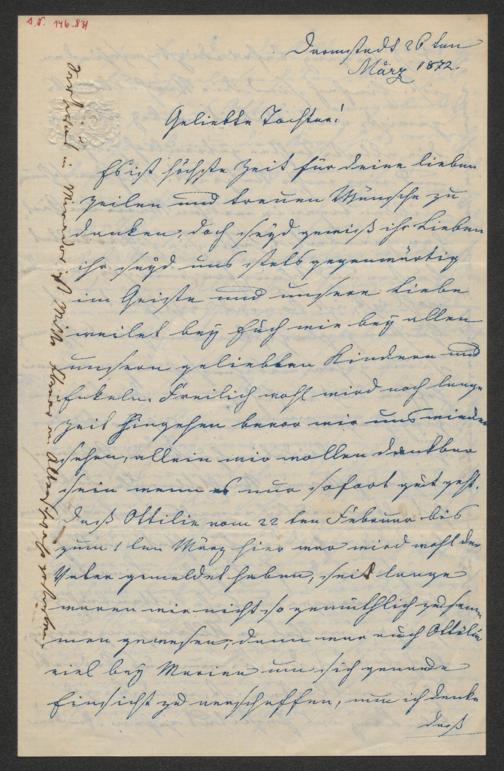 A.N. 146.831
Darmstadt 26 ten
März 1872.
Geliebte Tochter!
Es ist höchste Zeit für deine lieben
Zeilen und treuen Wünsche zu
danken, doch seyd gewiß ihr Lieben
ihr seyd uns stets gegenwärtig
im Geiste und unsere Liebe
weilet bey Euch wie bey allen
unsern geliebten Kindern und
Enkeln. Freilich wohl wird noch lange
Zeit hingehen bevor wir uns wieder
sehen, allein wir wollen dankbar
sein wenn es nur sofort gut geht.
Daß Ottilie vom 22 ten Februar bis
zum 1 ten März hier war wird wohl der
Vater gemeldet haben, seit lange
waren wir nicht so gemüthlich zusam
men gewesen, denn war auch Ottilie
viel bey Marien um sich genaue
Einsicht zu verschaffen, nun ich denke
daß
in